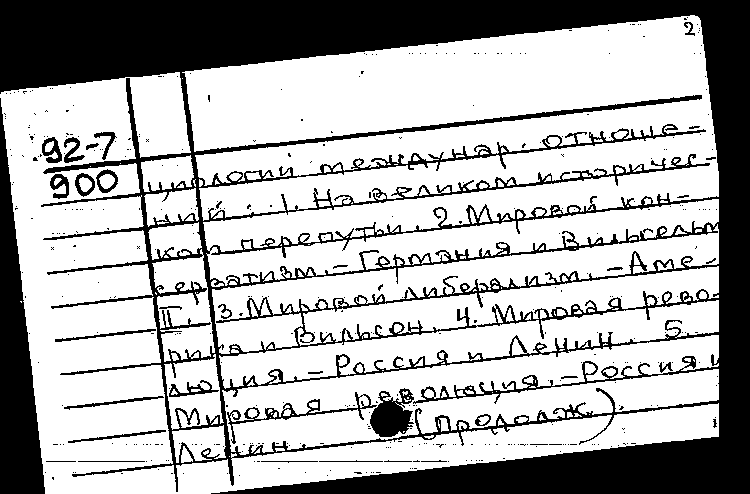 2
92-7
900
циологии междунар. отноше=
ний: 1. На великом историчес-
ком перепутьи. 2. Мировой кон=
серватизм. – Германия и Вильгельм
II. 3. Мировой либерализм. – Аме-
рика и Вильсон. 4. Мировая рево-
люция. – Россия и Ленин. 5.
Мировая революция. – Россия и
Ленин. (Продолж.)